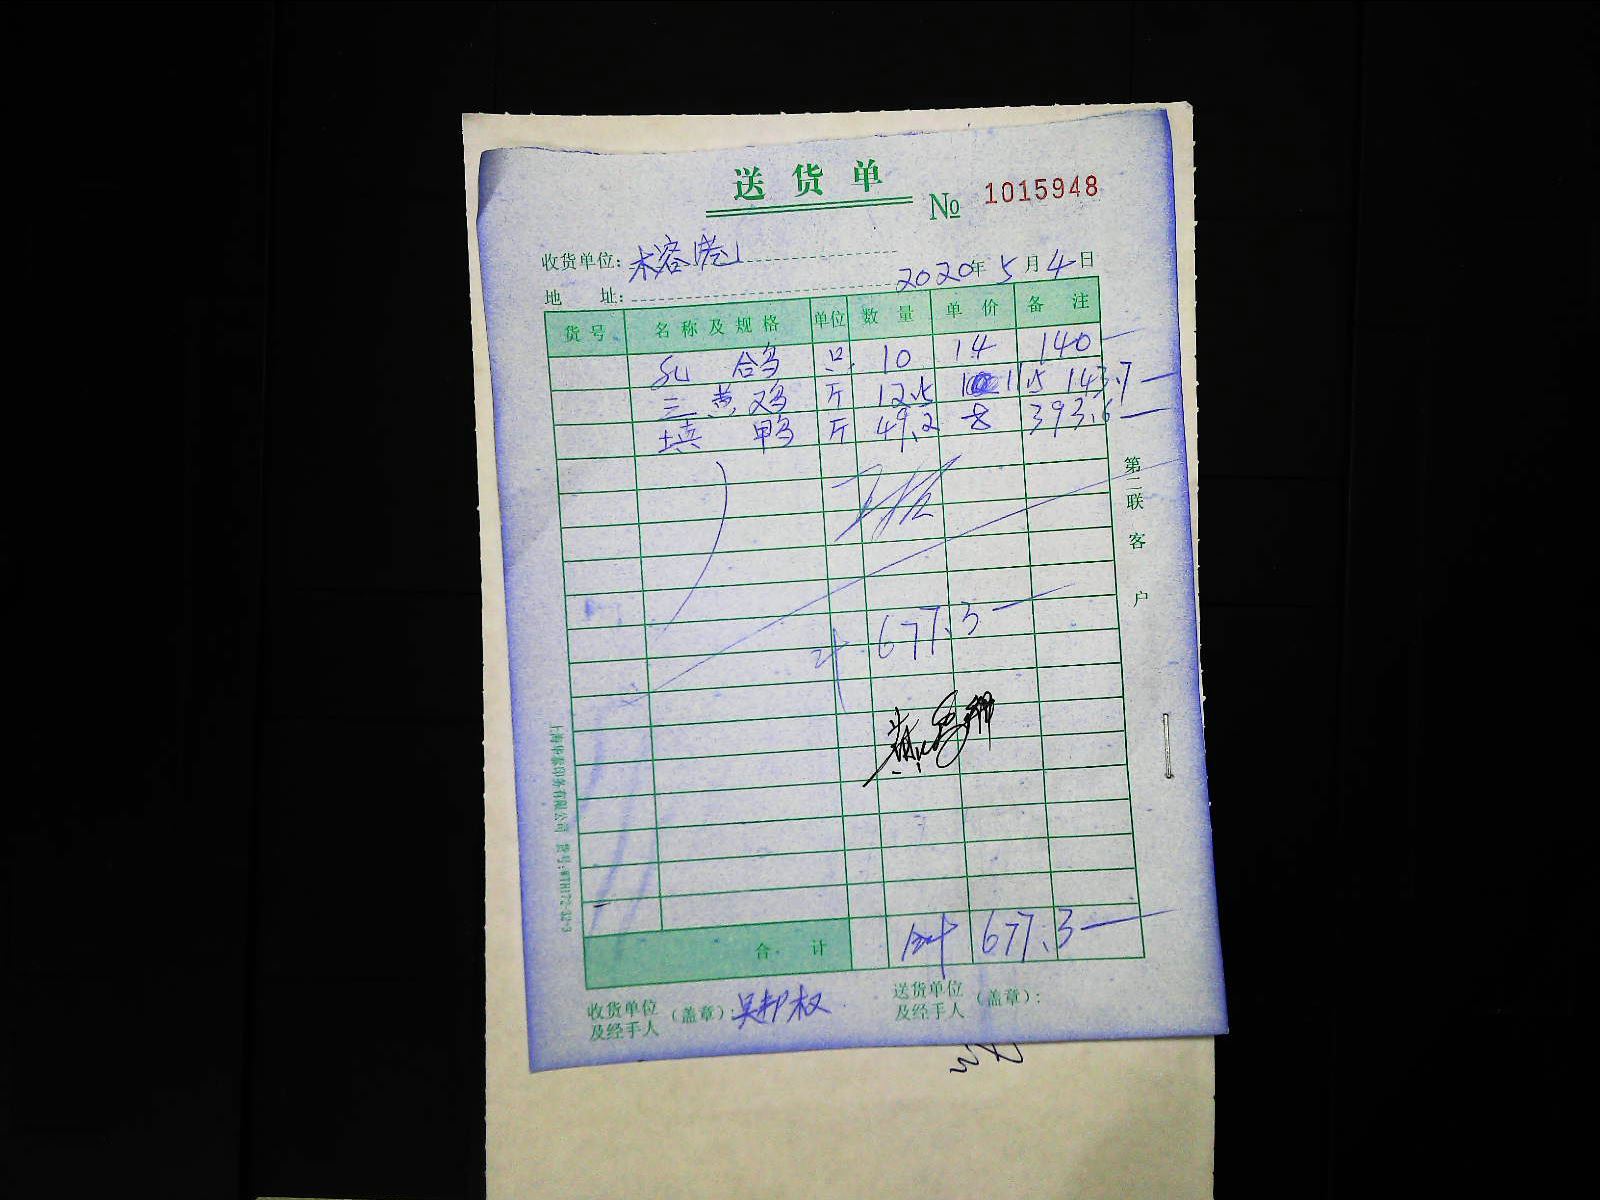 送货单
№ 1015948
收货单位：木容港
2020年5月4日
地 址：
货号 名称及规格 单位 数量 单价 备注
乳鸽 只 10 14 140
三黄鸡 斤 12.5 11.5 143.7
填鸭 斤 49.2 8 393.6
第二联 客户
计 677.3
合 计 合计 677.3
收货单位及经手人（盖章）：吴邦权
送货单位及经手人（盖章）：